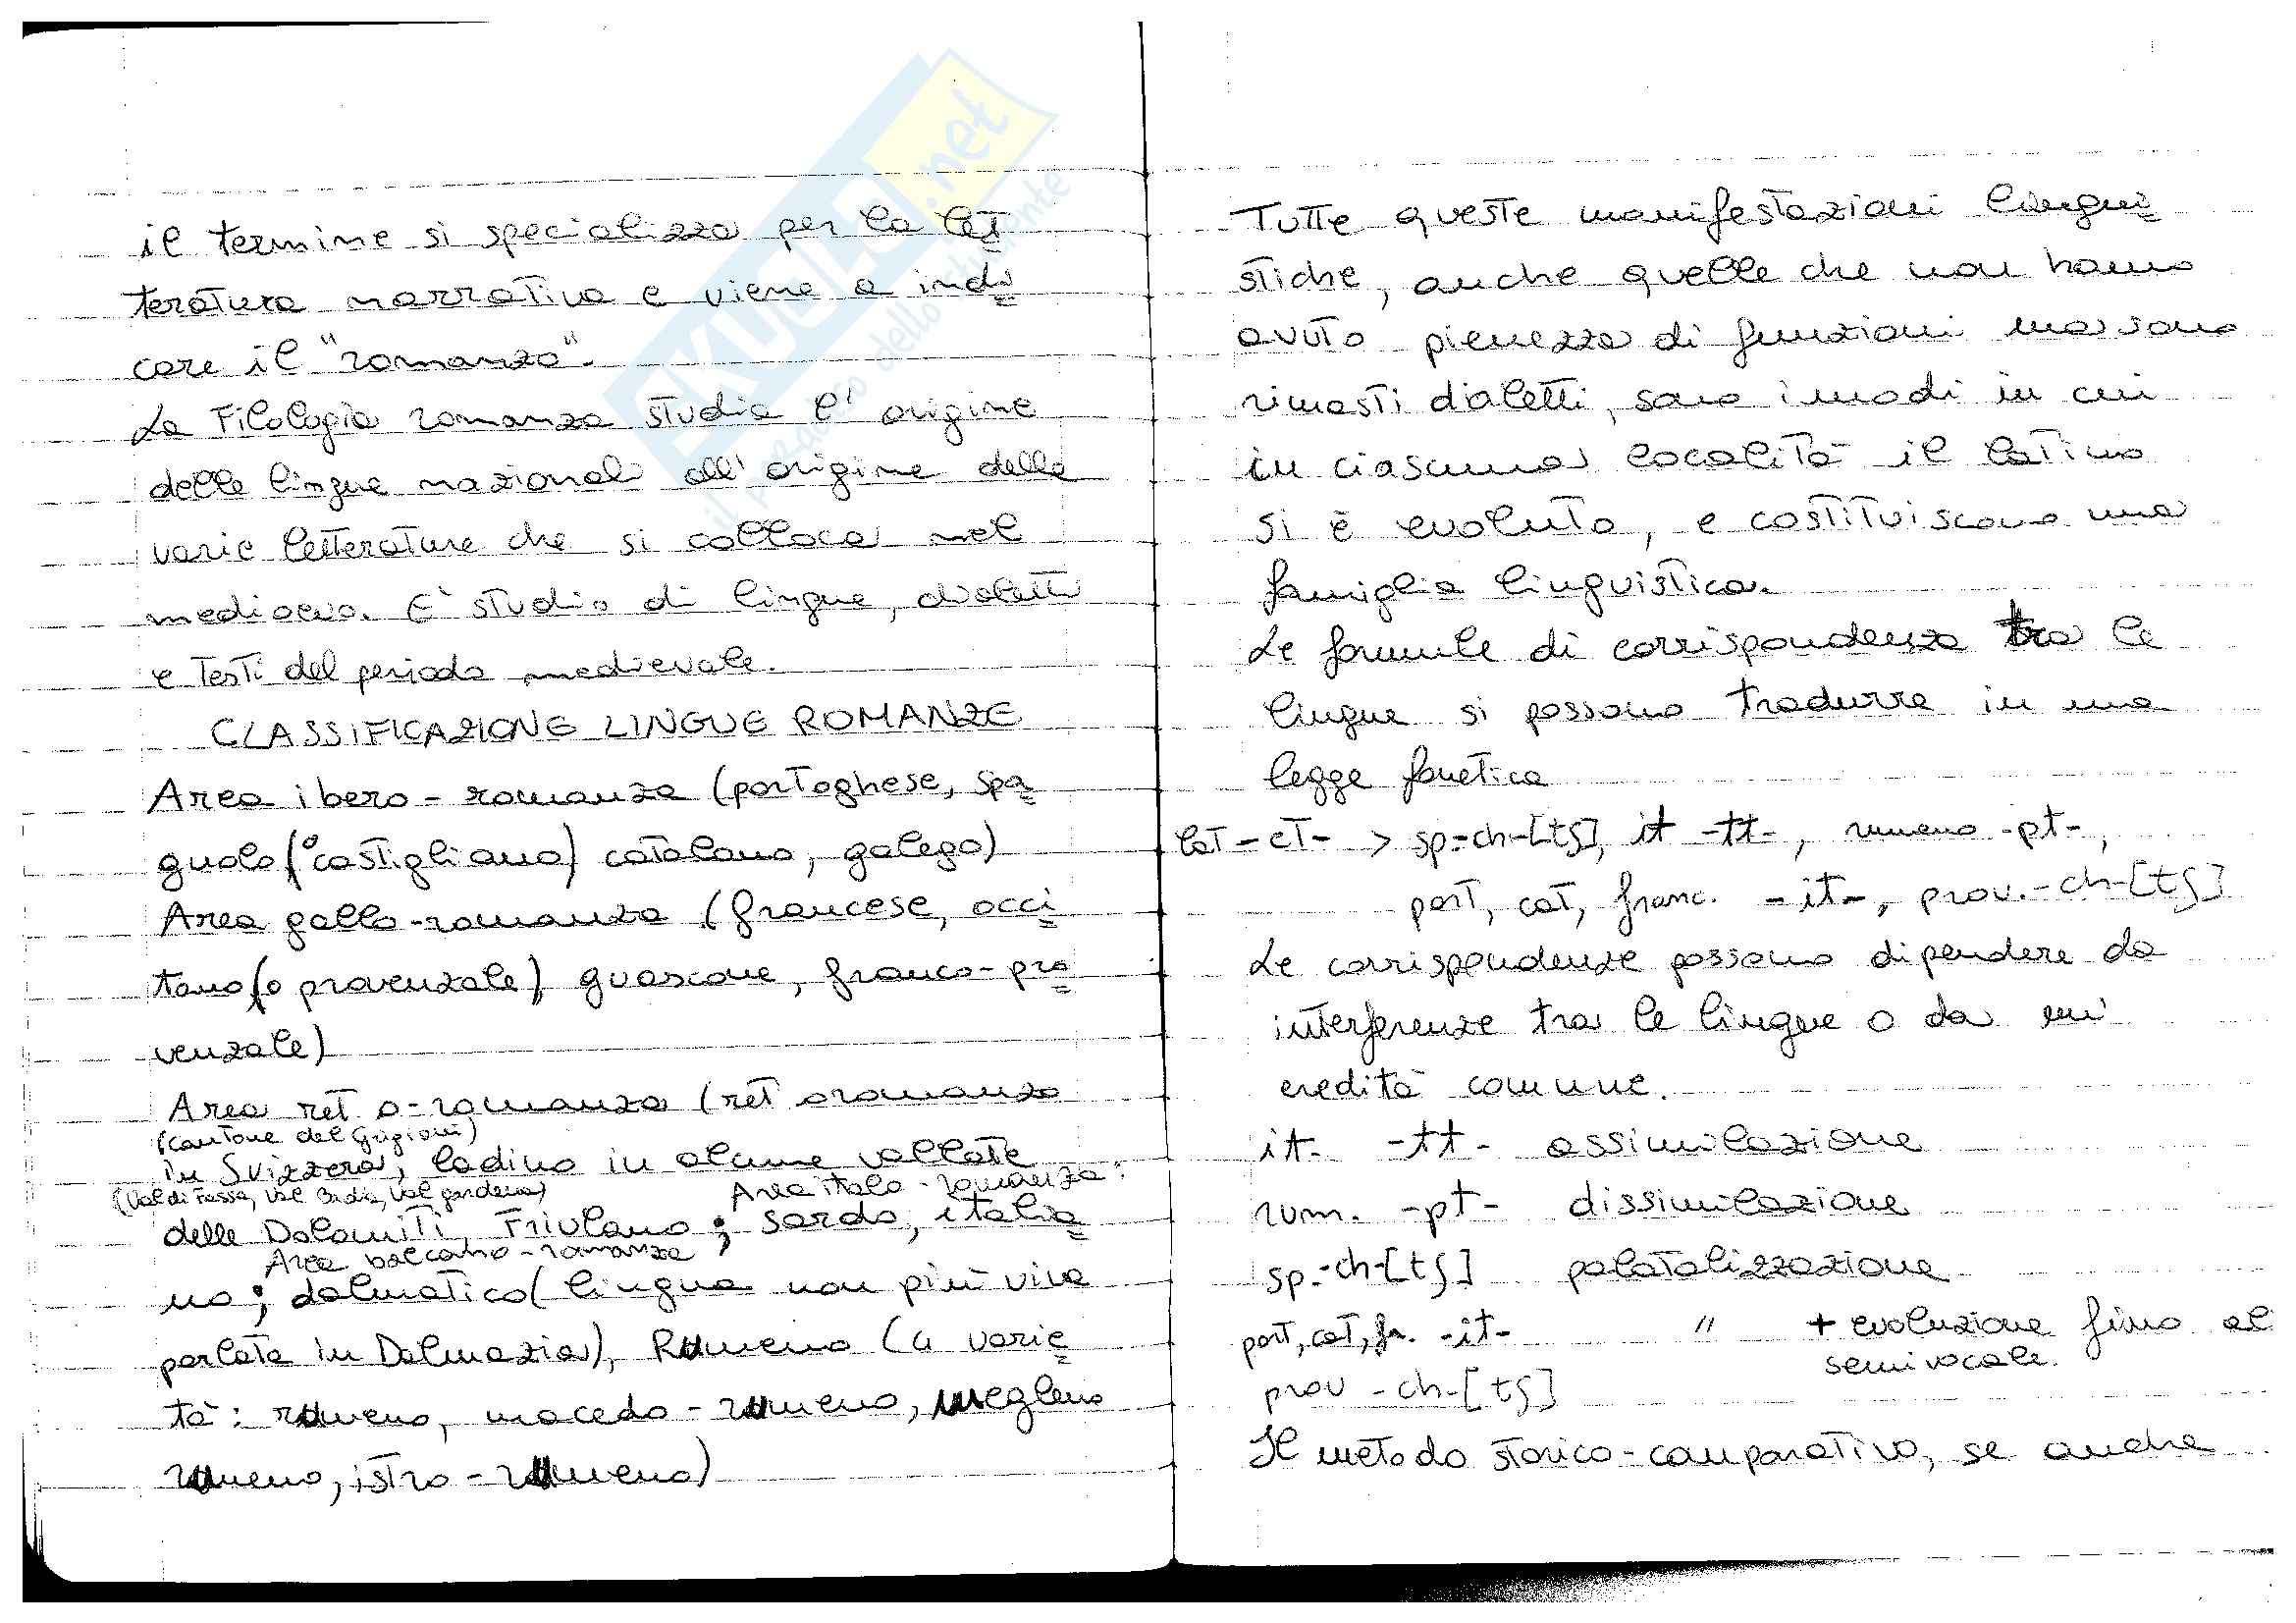 il termine si specializza per la let
teratura narrativa e viene a indi
care il "romanzo".
La Filologia romanza studia l'origine
delle lingue nazionali all'origine delle
varie letterature che si colloca nel
medioevo. E' studio di lingue, dialetti
e testi del periodo medievale.
CLASSIFICAZIONE LINGUE ROMANZE
Area ibero-romanza (portoghese, spa
gnolo (o castigliano) catalano, galego)
Area gallo-romanza (francese, occi
tano (o provenzale), guascone, franco-pro
venzale)
Area reto-romanza (retoromanzo
(Cantone dei Grigioni)
in Svizzera, ladino in alcune vallate
(Val di Fassa, Val Badia, Val gardena)
Area italo-romanza:
delle Dolomiti, Friulano; sardo, italia
Area balcano-romanza
no; dalmatico (lingua non più viva
parlata in Dalmazia), Rumeno (4 varie
tà: rumeno, macedo-rumeno, megleno
rumeno, istro-rumeno)
Tutte queste manifestazioni lingui
stiche, anche quelle che non hanno
avuto pienezza di funzioni ma sono
rimasti dialetti, sono i modi in cui
in ciascuna località il latino
si è evoluto, e costituiscono una
famiglia linguistica.
Le formule di corrispondenza tra le
lingue si possono tradurre in una
legge fonetica
lat -ct- > sp -ch-[tʃ], it -tt-, rumeno -pt-,
port, cat, franc. -it-, prov. -ch-[tʃ]
Le corrispondenze possono dipendere da
interferenze tra le lingue o da un'
eredità comune.
it. -tt- assimilazione
rum. -pt- dissimilazione
sp. -ch-[tʃ] palatalizzazione
port, cat, fr. -it- " + evoluzione fino al
semivocale.
prov -ch-[tʃ]
Il metodo storico-comparativo, se anche
AKUEB.net